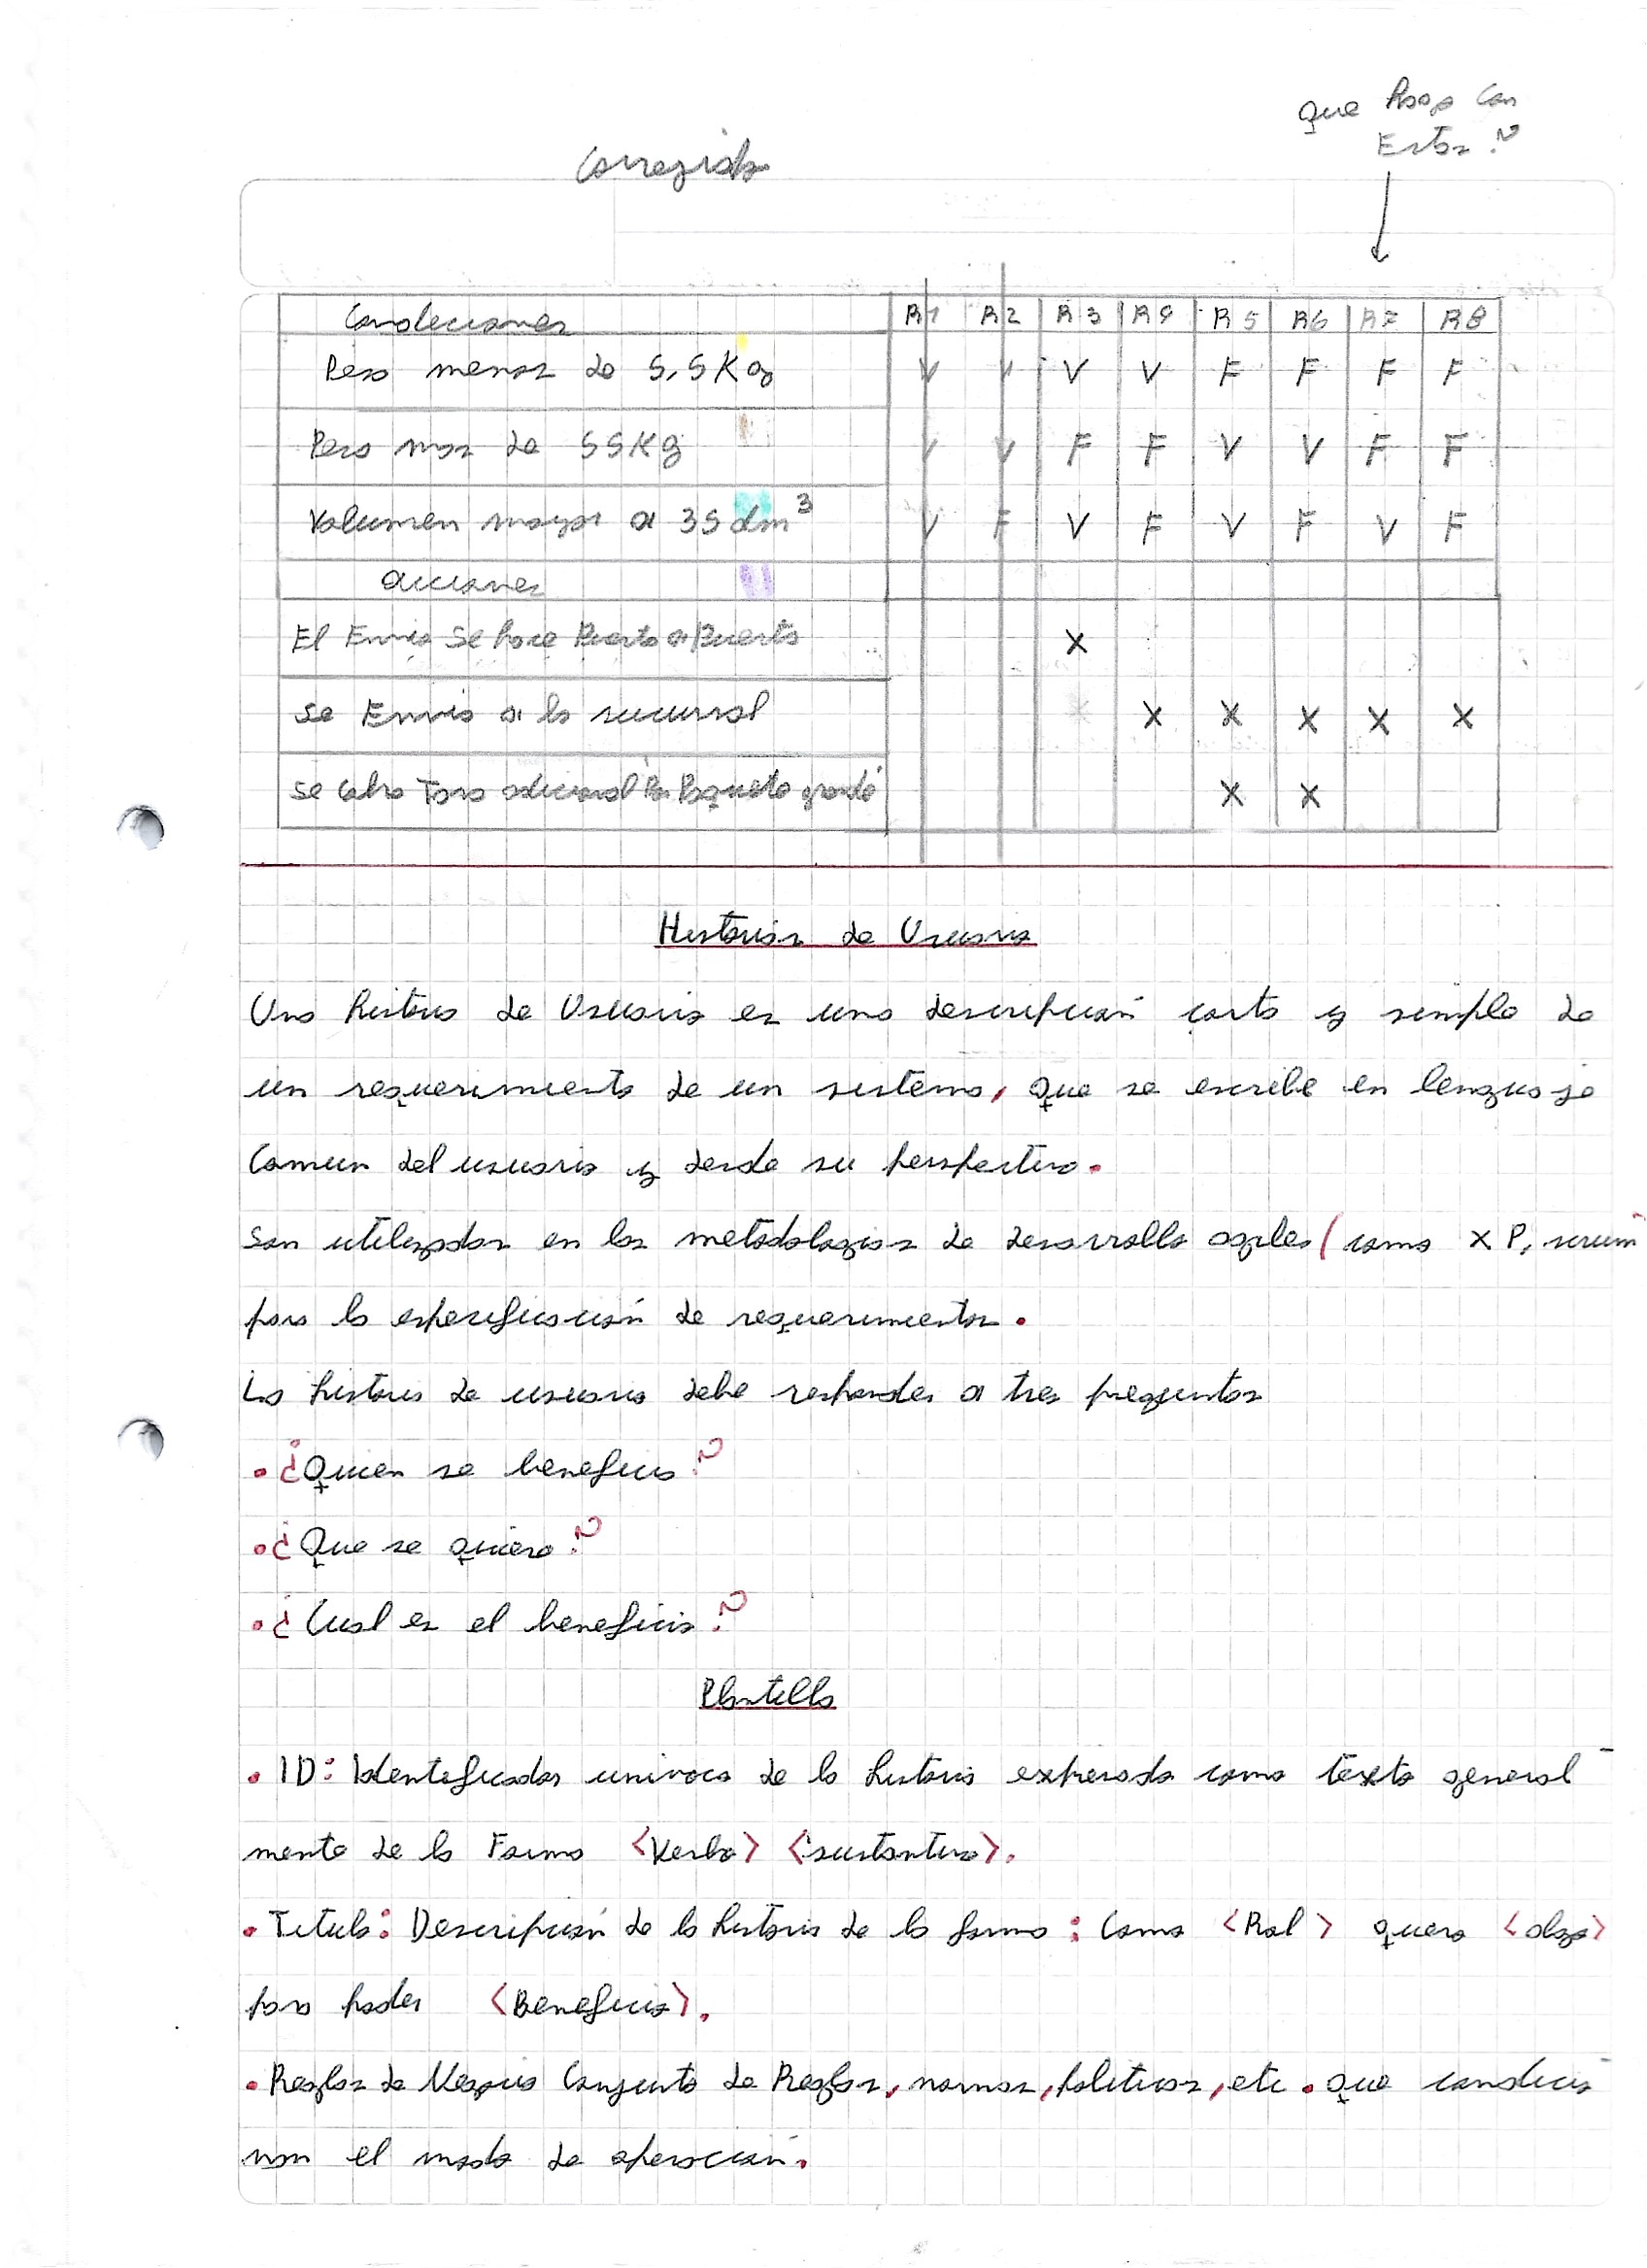 que Pasa Con
Estos?
Corregida
Condiciones R1 R2 R3 R4 R5 R6 R7 R8
Peso menor de 5,5Kg V V V V F F F F
Peso mas de 55Kg V V F F V V F F
Volumen mayor a 35 dm³ V F V F V F V F
acciones
El Envio Se hace Puerta a Puerta X
se Envia a la sucursal X X X X X
se cobra Tasa adicional Por Paquete grande X X
Historias de Usuario
Una historia de Usuario es una descripción corta y simple de
un requerimiento de un sistema, que se escribe en lenguaje
Comun del usuario y desde su perspectiva.
Son utilizadas en las metodologias de desarrollo agiles (como XP, scrum
para la especificación de requerimientos.
La historia de usuario debe responder a tres preguntas
• ¿Quien se beneficia?
• ¿Que se quiere?
• ¿Cual es el beneficio?
Plantilla
• ID: Identificador univoco de la historia expresada como texto general-
mente de la Forma <Verbo> <sustantivo>.
• Titulo: Descripción de la historia de la forma: Como <Rol> quiero <algo>
para poder <Beneficio>.
• Reglas de Negocio Conjunto de Reglas, normas, politicas, etc. que condicio-
nan el modo de operacion.